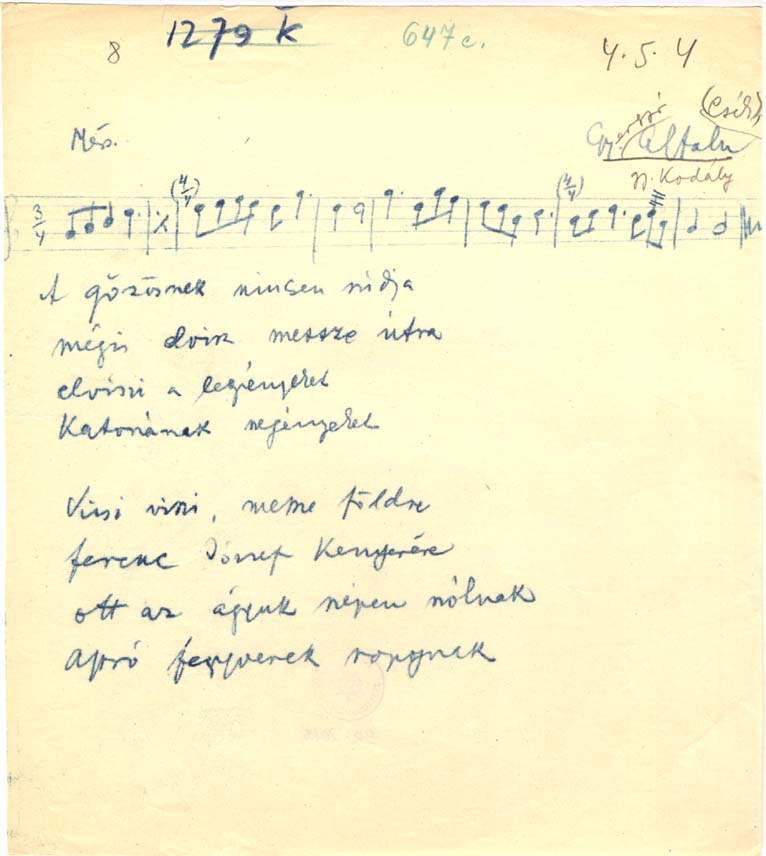 8 1279 K 647c. 4·5·4
(Csík)
Mérs. Gy. Altalu
gy. Kodály
3/4 (4/4) (4/4)
A gőzösnek nincsen rúdja
mégis elvisz messze útra
elviszi a legényeket
Katonának szegényeket
Viszi viszi, messze földre
ferenc József Kenyerére
ott az ágyuk szépen szólnak
Apró fegyverek ropognak